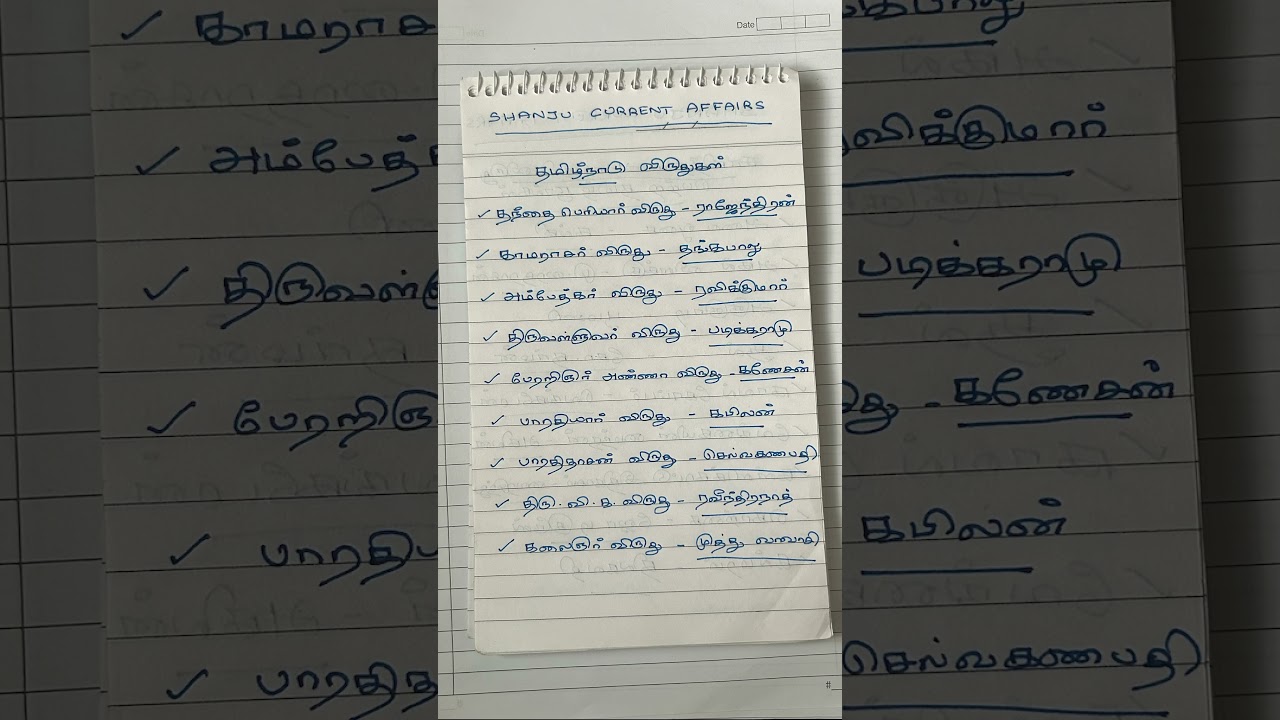 Date
SHANJU CURRENT AFFAIRS
தமிழ்நாடு விருதுகள்
✓ தந்தை பெரியார் விருது - ராஜேந்திரன்
✓ காமராசர் விருது - தங்கபாலு
✓ அம்பேத்கர் விருது - ரவிக்குமார்
✓ திருவள்ளுவர் விருது - படிக்கராமு
✓ பேரறிஞர் அண்ணா விருது - கணேசன்
✓ பாரதியார் விருது - கபிலன்
✓ பாரதிதாசன் விருது - செல்வகணபதி
✓ திரு. வி. க. விருது - ரவீந்திரநாத்
✓ கலைஞர் விருது - முத்து வாவாசி